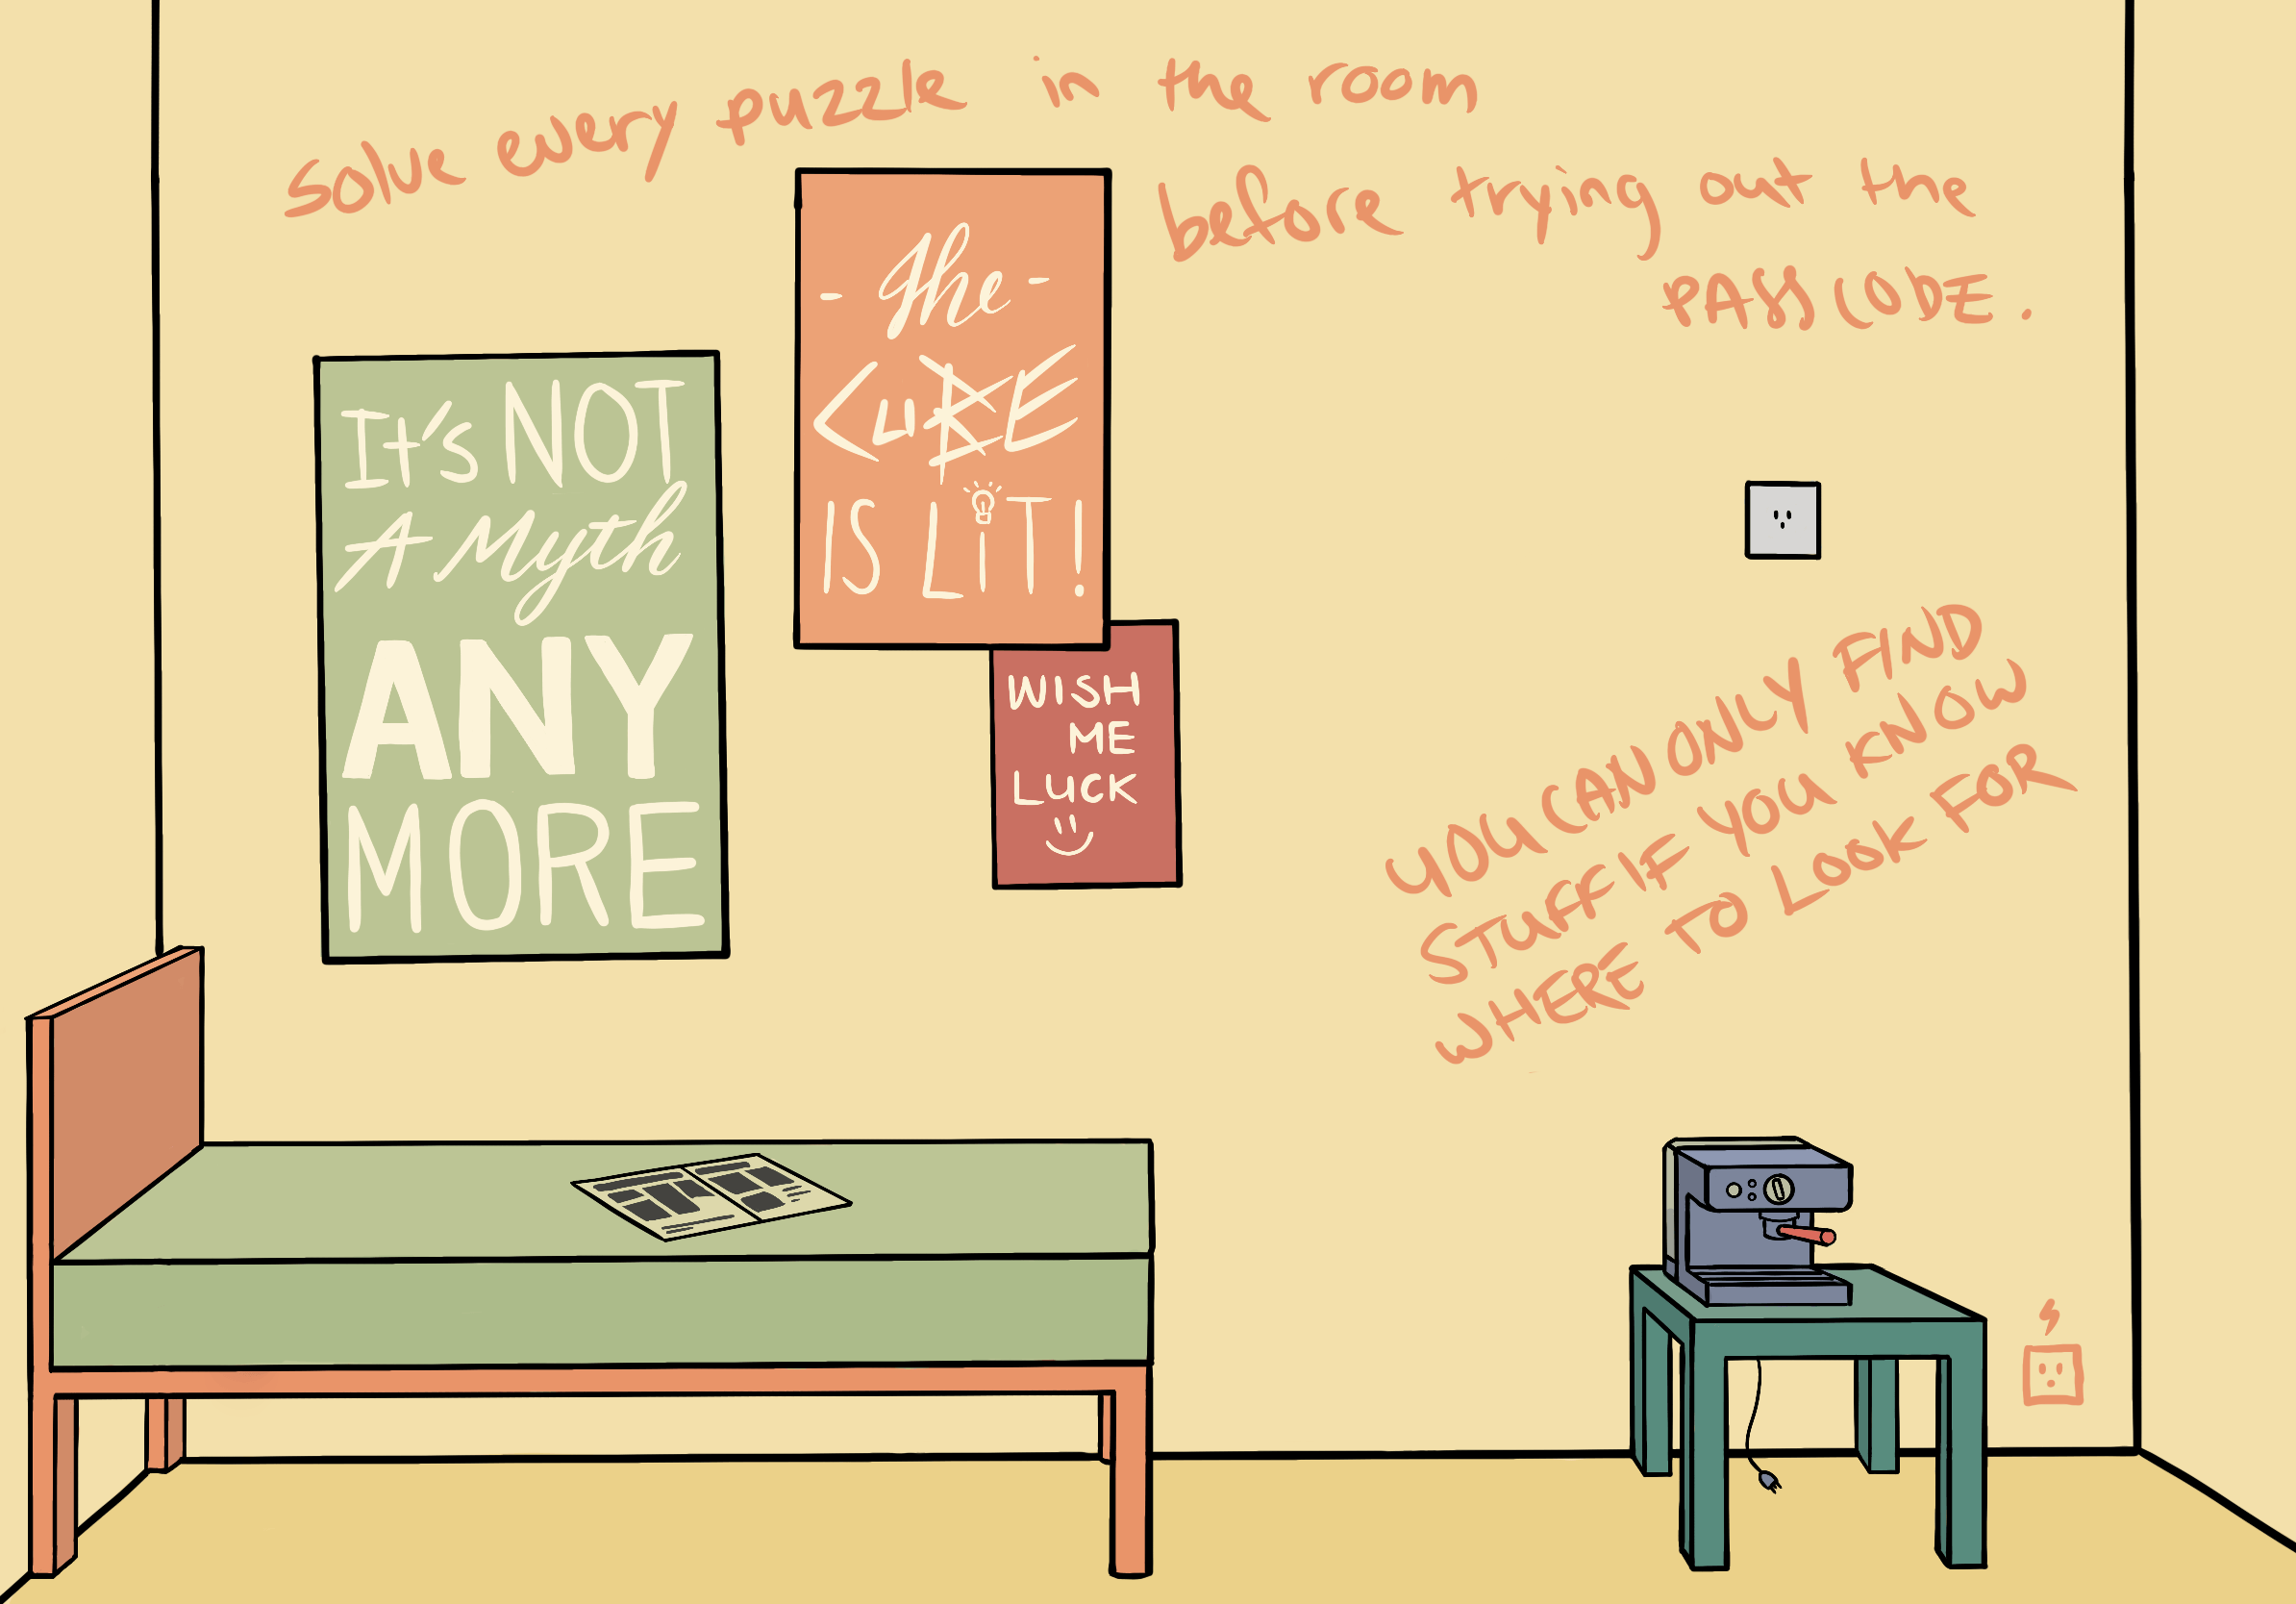 Solve every puzzle in the room
before trying out the
PASSCODE.
- the -
CUBE
IS LiT!
It's NOT
A Myth
ANY
MORE
WISH
ME
LUCK
YOU CAN ONLY FIND
STUFF IF YOU KNOW
WHERE TO LOOK FOR